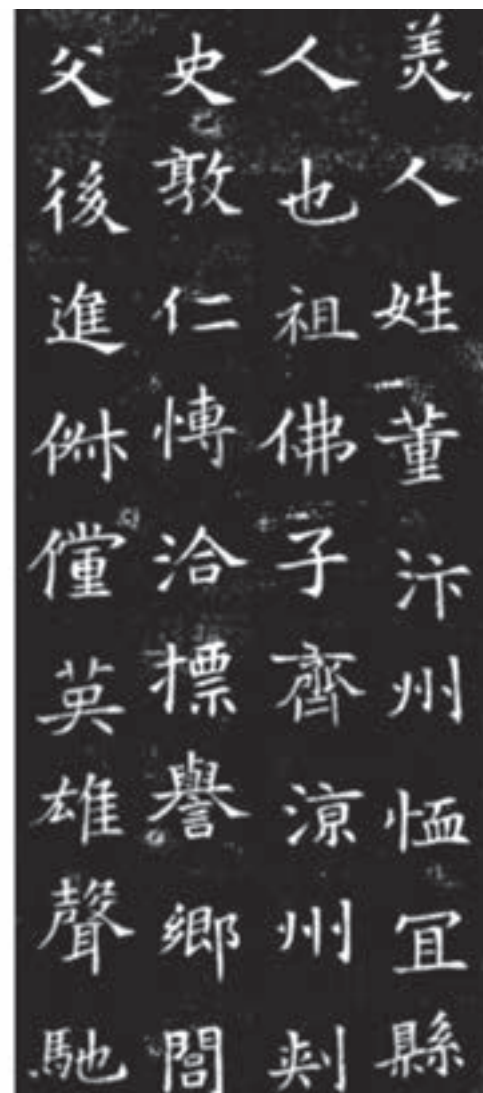 美人姓董汴州恤冝縣
人也祖佛子齊涼州刾
史敦仁慱洽摽譽鄉閭
父後進俶儻英雄聲馳